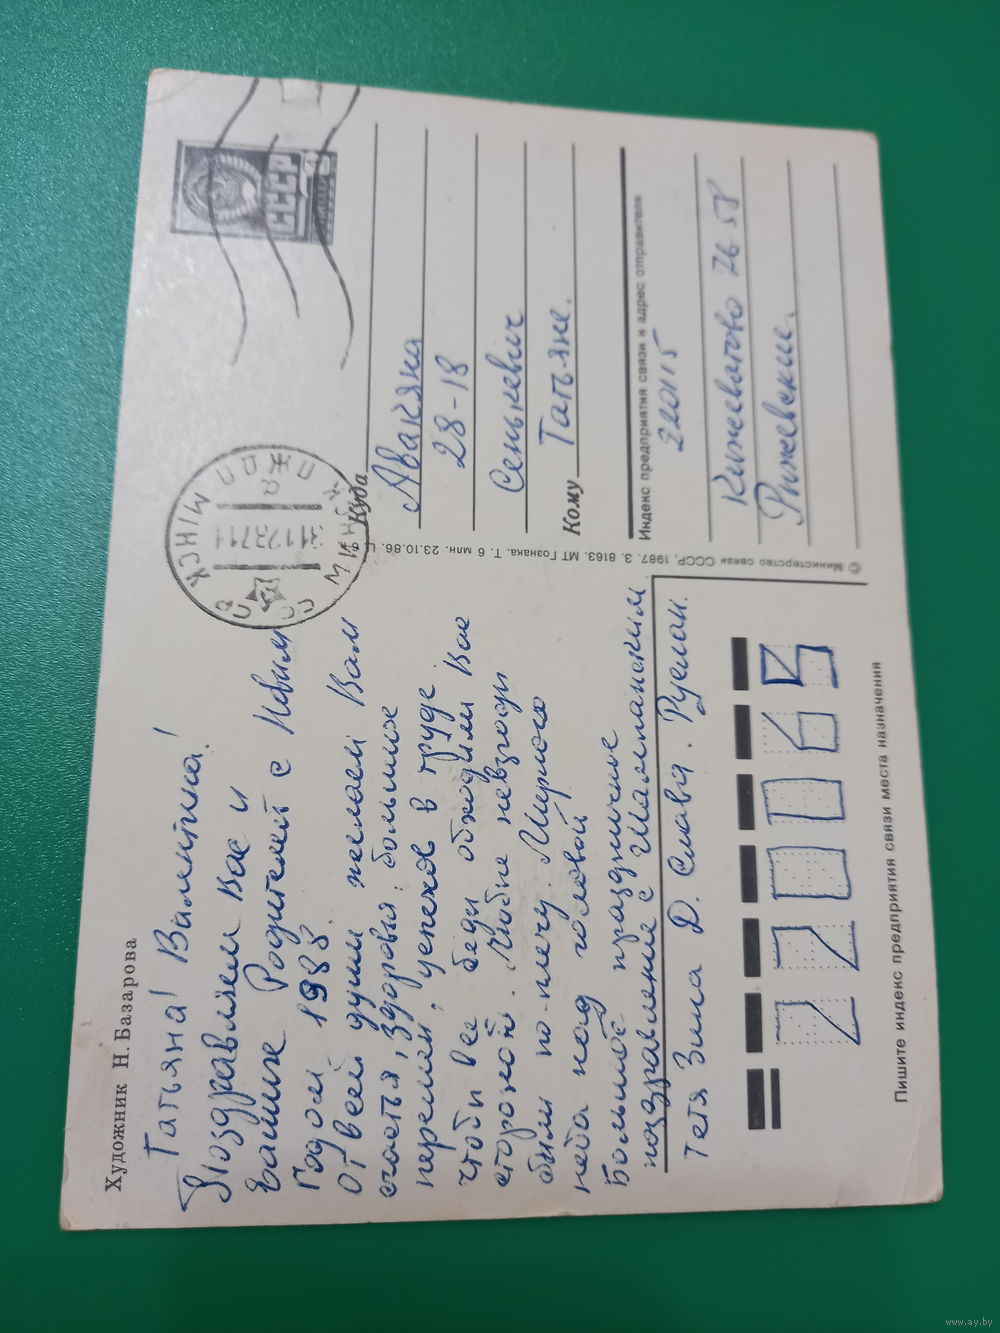 Художник Н. Базарова
Татьяна! Валентина!
Поздравляем Вас и
Ваших Родителей с Новым
Годом 1988.
От всей души желаем Вам
счастья, здоровья, больших
перемен, успехов в труде
чтобы все беды обходили Вас
стороной. Любые невзгоды
были по-плечу. Мирного
неба над головой
Большое праздничное
поздравление с Шампанским
тетя Зина Д. Слава. Руслан.
СССР
МІНСК ПЖДП
МИНСК
Куда
Авакяна
28-18
Сенькевич
Кому Татьяне.
Индекс предприятия связи и адрес отправителя
220115
Кижеватова 76 58
Рыжевские.
© Министерство связи СССР, 1987. З. 8163. МТ Гознака. Т. 6 млн. 23.10.86.
Пишите индекс предприятия связи места назначения
www.ay.by